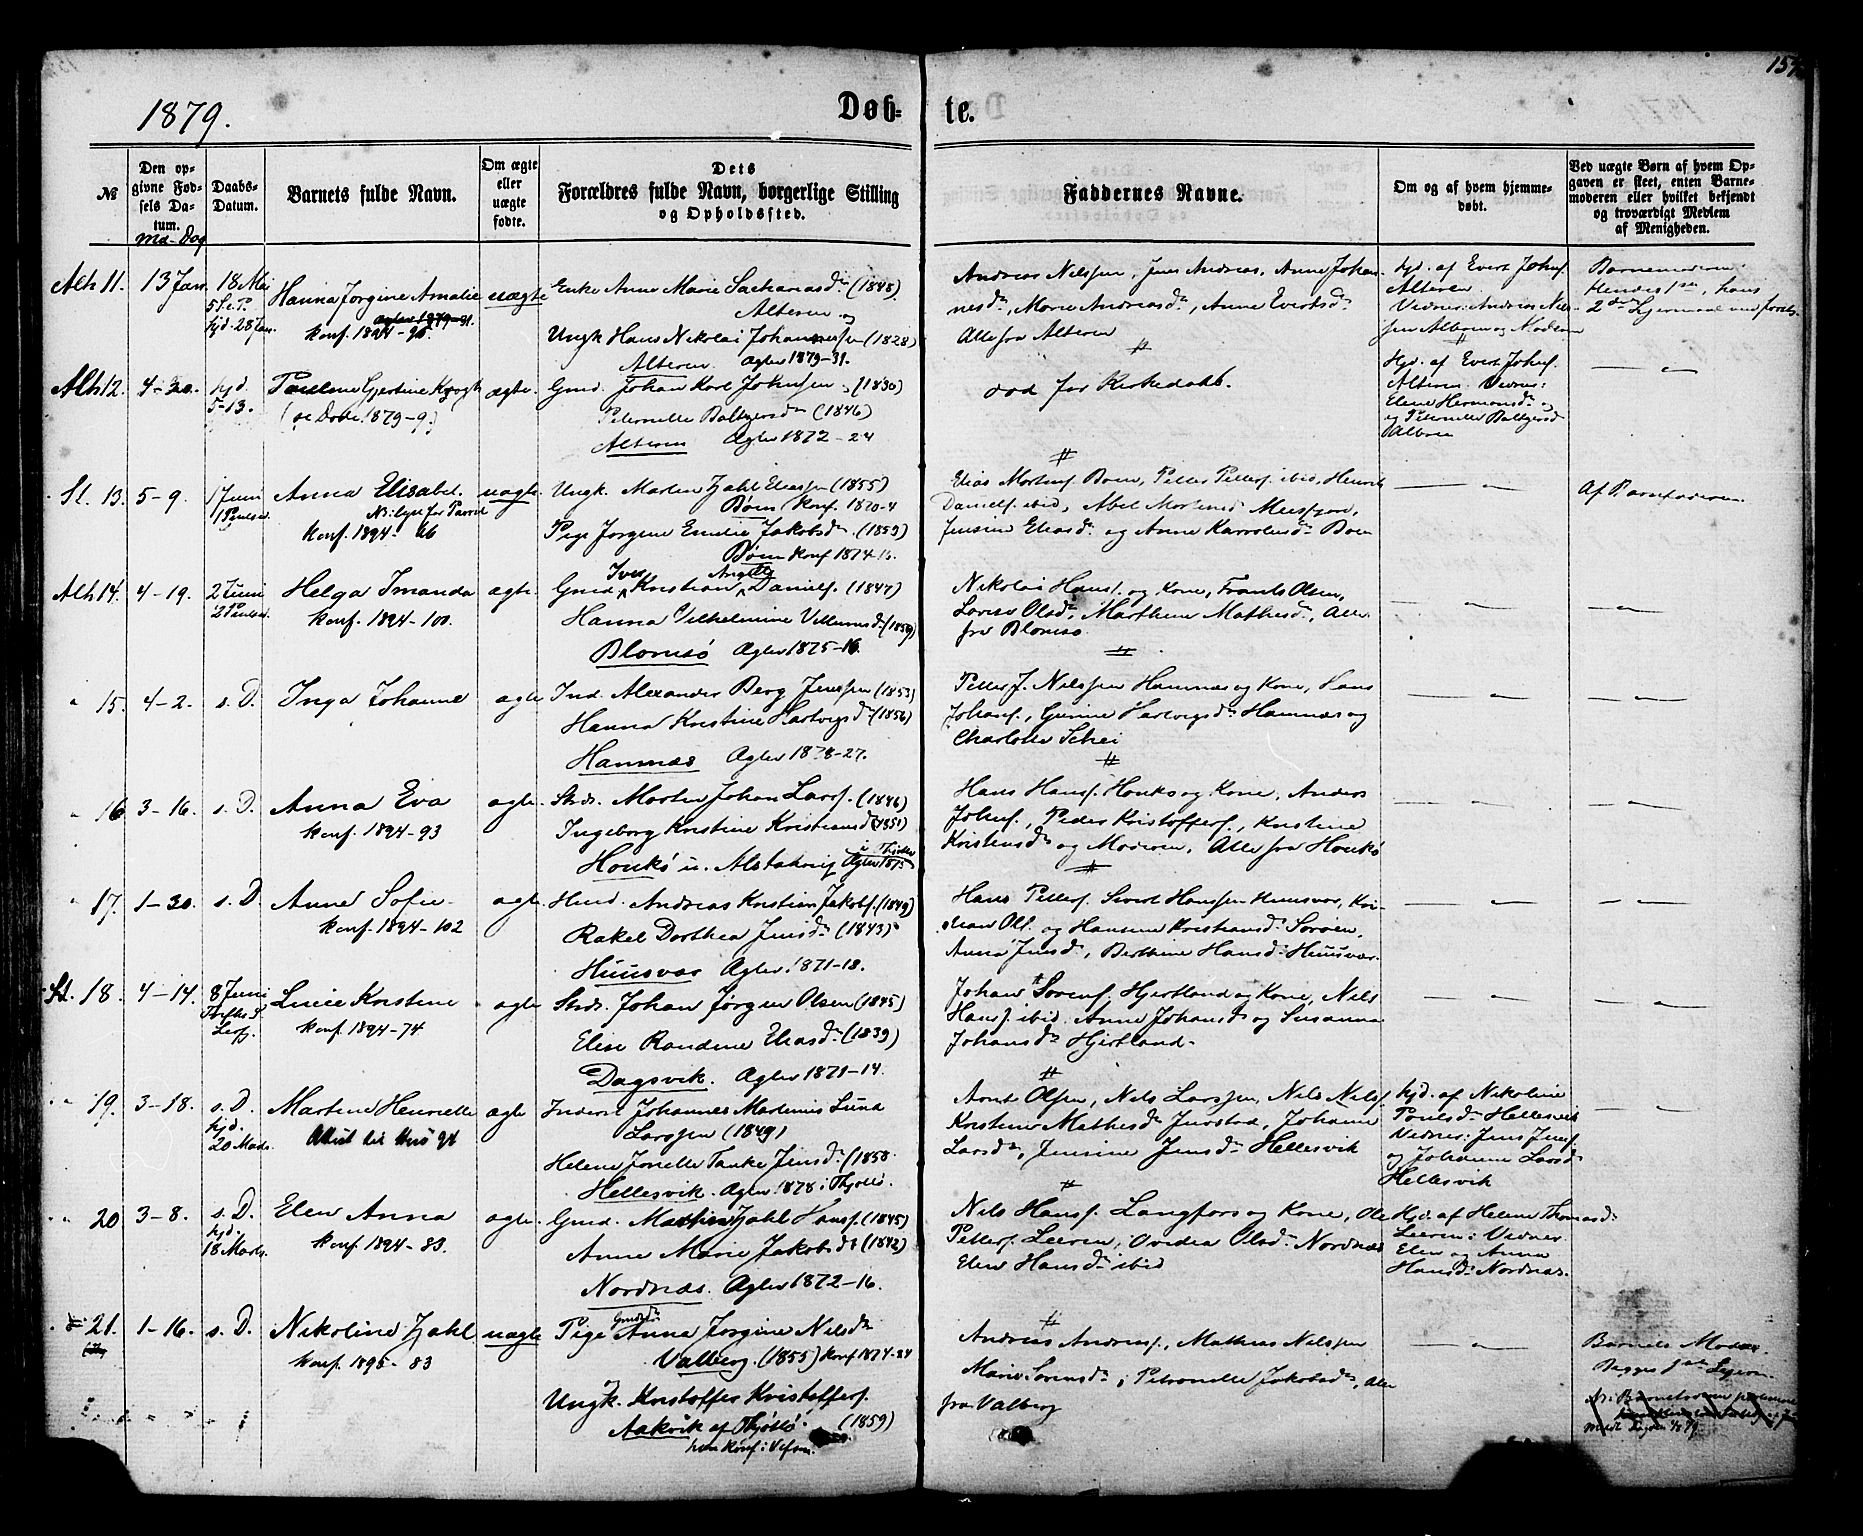 157
1879.
Døb-
te.
№
Den op-
givne Fød-
sels Da-
tum.
Md - Dag
Daabs-
Datum.
Barnets fulde Navn.
Om ægte
eller
uægte
fødte.
Dets
Forældres fulde Navn, borgerlige Stilling
og Opholdssted.
Faddernes Navne.
Om og af hvem hjemme-
døbt.
Ved uægte Børn af hvem Op-
gaven er skeet, enten Barne-
moderen eller hvilket bekjendt
og troværdigt Medlem
af Menigheden.
Alh 11. 13 Jan. 18 Mai
hjd. 28 Jan.
Hanna Jørgine Amalie
Konf. 1894-96.
uægte
Enke Anne Marie Sachariasdr (1848)
Alteren og
Ungk Hans Nikolai Johannessen (1828)
Alteren Ægtev 1879-31.
Andreas Nilssen, Jens Andreas, Anne Johan-
nesdr, Marie Andreasdr, Anne Evertsdr
Alle fra Alteren
hjd. af Evert Johns.
Alteren.
Vidner: Andreas Nils-
sen Alteren og Moderen
Barnemoderen.
Hendes 1ste, hans
2den Leiermaal
Alh 12. 4-20. hjd.
5-13.
Pauline Gjertine Krogh
(se Døbte 1879-9.)
ægte.
Gmd. Johan Karl Johnsen, (1830)
Peternelle Baltzersdr (1846)
Alteren Ægtev 1872-24
død før Kirkedaab.
Hjd. af Evert Johns.
Alteren. Vidner:
Elene Hermansdr og
Peternelle Baltzersdr
Alteren
St. 13. 5-9. 1 Juni
Anna Elisabet.
Konf. 1894-66
uægte.
Ungk. Morten Zahl Eliassen (1855)
Bøen Konf. 1870-4
Pige Jørgine Emilie Jakobsdr (1859)
Bøen Konf 1874-
Elias Mortens. Boen, Petter Petters. ibid, Henrik
Daniels. ibid, Abel Mortensdr
Jensine Eliasdr og Anne Karolusdr Boen
Af Barnefaderen.
Alh 14. 4-19. 2 Juni
Helga Imanda
Konf. 1894-100.
ægte.
Iver Angell
Gmd. Kristian Daniels. (1847)
Hanna Vilhelmine Villumsdr (1850)
Blomsø Ægtev 1875-16.
Nikolai Hans. og Kone, Frants Olsen,
Lovise Olsdr, Marthine Mathisdr, Alle
fra Blomsø
" 15. 4-2. s. D.
Inga Johanne
ægte
Ind. Alexander Berg Jenssen (1853)
Hanna Kristine Hartvigsdr (1856)
Hamnæs Ægtev 1878-27.
Petter J. Nilssen Hamnæs og Kone, Hans
Johans., Gurine Hartvigsdr Hamnæs og
Charlotte
" 16 3-16. s. D.
Anna Eva
Konf. 1894-93
ægte.
Strds. Morten Johan Larss. (1846)
Ingeborg Kristine Kristiansdr (1851)
Houkø u. Alstahoug Ægtev 1875
i Thjøttø
Hans Hans. Houkø og Kone, Anders
Johns., Peder Kristoffers., Kristine
Kristensdr og Moderen, Alle fra Houkø
" 17. 1-30. s. D.
Anne Sofie
Konf. 1894-102
ægte.
Hmd. Andreas Kristian Jakobs. (1849)
Rakel Dorthea Jensdr (1843)
Huusvær Ægtev. 1871-18.
Hans Petters. Sivert Hanssen Huusvær, Kri-
stian Ols. og Hansine Kristiansdr Sørøen,
Anna Jensdr, Berthine Hansdr Huusvær.
St. 18. 4-14. 8 Juni
Lucie Kristine
Konf. 1894-74
ægte
Strds. Johan Jørgen Olsen (1845)
Elise Randine Eliasdr (1839)
Dagsvik. Ægtev 1871-14.
Johan Sørens. Hjertland og Kone, Nils
Hans. ibid. Anne Johansdr og Susanna
Johansdr Hjertland.
" 19. 3-18. s. D.
hjd.
20 Marts.
Martine Henriette
ægte
Inderst Johannes Martinus Lund
Larssen (1849)
Helene Jonette Tanke Jensdr (1858
Hellesvik. Ægtev. 1878 i Thjøttø.
Arnt Olsen, Nils Larssen, Nils Nils.
Kristine Mathisdr, Johanne
Larsdr, Jensine Jensdr Hellesvik
hjd. af Nikoline
Poulsdr Hellesvik
Vidner: Jens Jens.
og Johanne Larsdr
Hellesvik
" 20 3-8. s. D.
hjd.
18 Marts.
Elen Anna
Konf. 1894-83.
ægte.
Gmd. Martin Zahl Hans. (1845)
Anne Marie Jakobsdr (1842)
Nordnæs. Ægtev 1872-16.
Nils Hans. Langfors og Kone, Ole
Petters. Leeren, Ovidea Olsdr Nordnæs
Elen Hansdr ibid
Hjd. af Helene Thomasdr
Leeren: Vidner.
Elen og Anna
Hansdr Nordnæs.
21. 1-16. s. D.
Nikoline Zahl
Konf. 1895-83
uægte
Pige Anna Jørgine Nilsdr
Valberg. (1855) Konf 1874-24
Ungk. Kristoffer Kristoffers.
Aakvik af Thjøttø. (1859)
Andreas Andreas., Mathias Nilssen
Marie Sørensdr, Petronelle Jakobsdr, Alle
fra Valberg
Barnets Moder.
Begges 1ste Leierm.